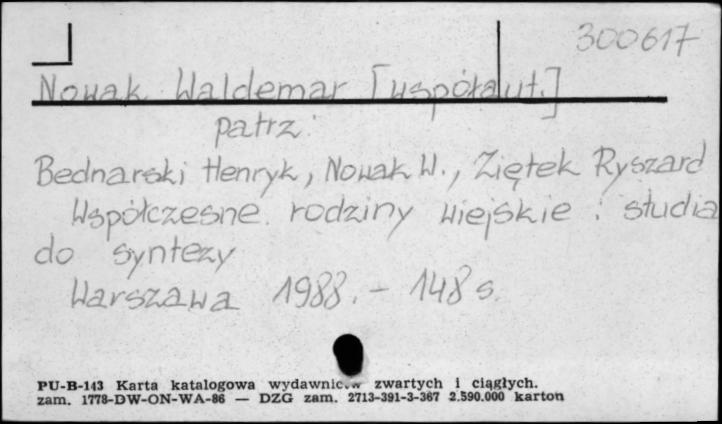 300617
Nowak Waldemar [współaut.]
patrz:
Bednarski Henryk, Nowak W., Ziętek Ryszard
Współczesne rodziny wiejskie : studia
do syntezy
Warszawa 1988. - 148 s.
PU-B-143 Karta katalogowa wydawnictw zwartych i ciągłych.
zam. 1778-DW-ON-WA-86 — DZG zam. 2713-391-3-367 2.590.000 karton